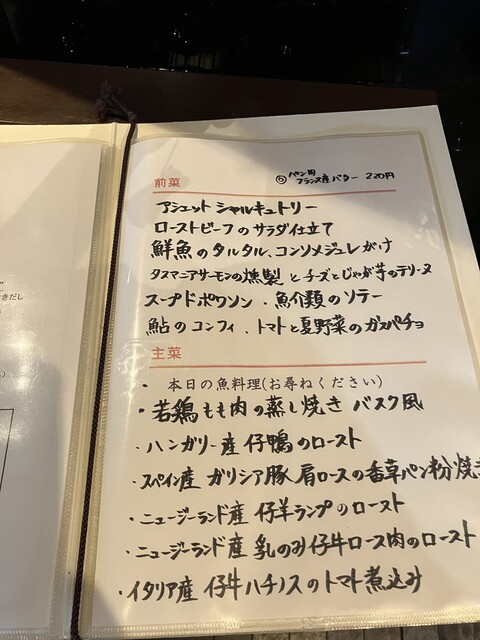 きだし
前菜
◎パン用
フランス産バター 220円
アシェット シャルキュトリー
ローストビーフのサラダ仕立て
鮮魚のタルタル、コンソメジュレがけ
タスマニアサーモンの燻製とチーズとじゃが芋のテリーヌ
スープドポワソン・魚介類のソテー
鮎のコンフィ、トマトと夏野菜のガスパチョ
主菜
・ 本日の魚料理(お尋ねください)
・若鶏もも肉の蒸し焼き バスク風
・ハンガリー産仔鴨のロースト
・スペイン産 ガリシア豚 肩ロースの香草パン粉焼き
・ニュージーランド産 仔羊ランプのロースト
・ニュージーランド産 乳のみ仔牛ロース肉のロースト
・イタリア産 仔牛ハチノスのトマト煮込み